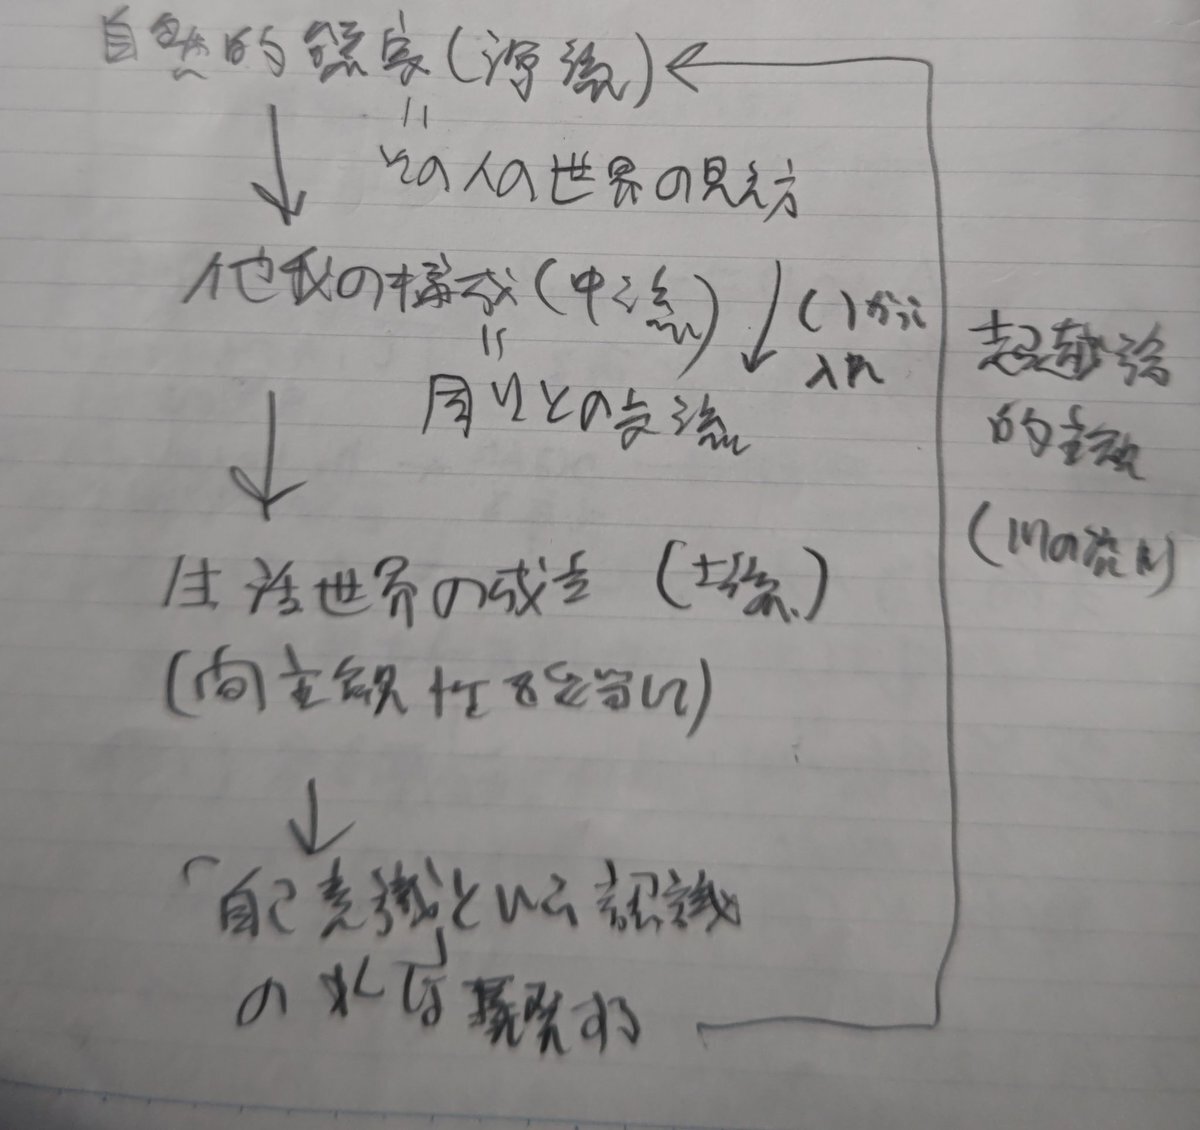 自然的態度(源流)
=
その人の世界の見え方
他我の構成(中流)
( )が
入れ
=
周りとの交流
超越論
的主観
(川の流れ)
生活世界の成立
(間主観性
「自己意識という認識
の
する